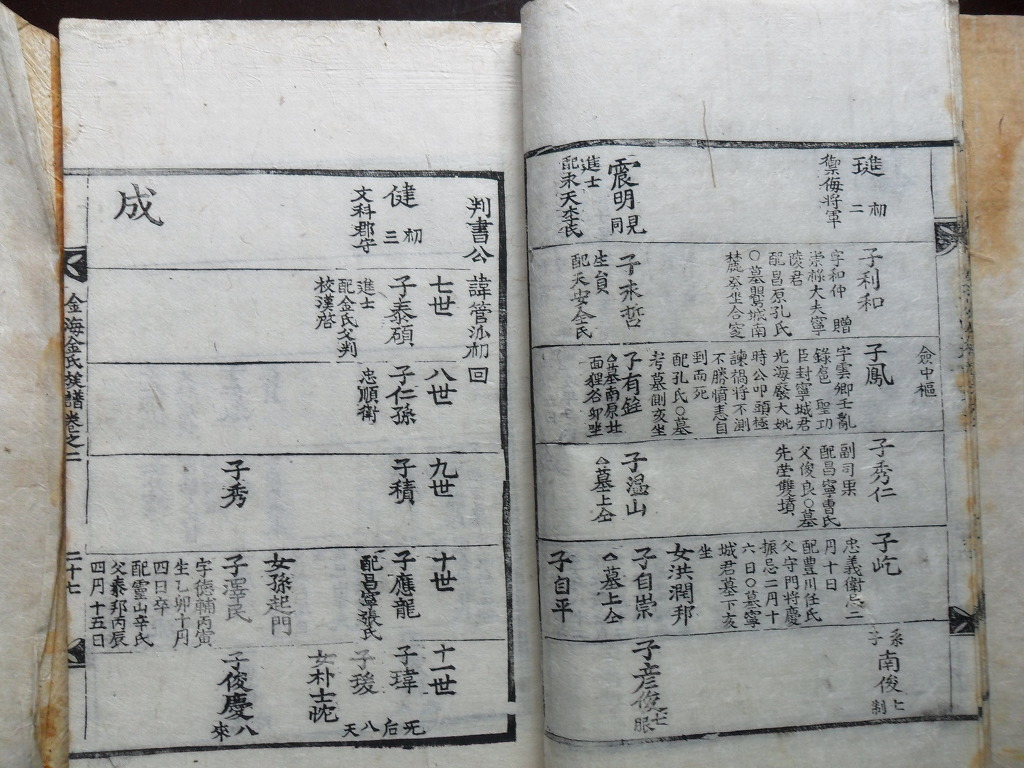 璡 初
二
禦侮將軍
震明
見同
進士
配永天李氏
子利和
字和仲 贈
崇祿大夫寧
陵君
配昌原孔氏
子來哲
生員
配天安金氏
僉中樞
子鳳
字雲卿壬亂
錄扈 聖功
臣封寧城君
光海廢大妣
時公叩頭極
諫禍將不測
不勝憤恚自
到而死
配孔氏〇墓
考墓側亥坐
子有銓
子秀仁
副司果
配昌寧曹氏
父俊良〇墓
先塋雙墳
子溫山
墓上仝
子屹
忠義衛忌二
月十日
配豊川任氏
父守門將慶
振忌二月十
六日〇墓寧
城君墓下亥
坐
女洪潤邦
子自崇
墓上仝
子自平
系子
南俊
子彦俊
判書公
諱管
初
回
健 初
三
文科郡守
成
七世
子泰碩
進士
配金氏父判
校漢啓
八世
子仁孫
忠順衛
九世
子積
子秀
十世
子應龍
配昌寧張氏
女孫起門
子澤民
字德輔丙寅
生乙卯十月
四日卒
配靈山辛氏
父泰邦丙辰
四月十五日
十一世
子瑋
子瑗
女朴士忱
子俊慶
金海金氏族譜卷之二
二十七